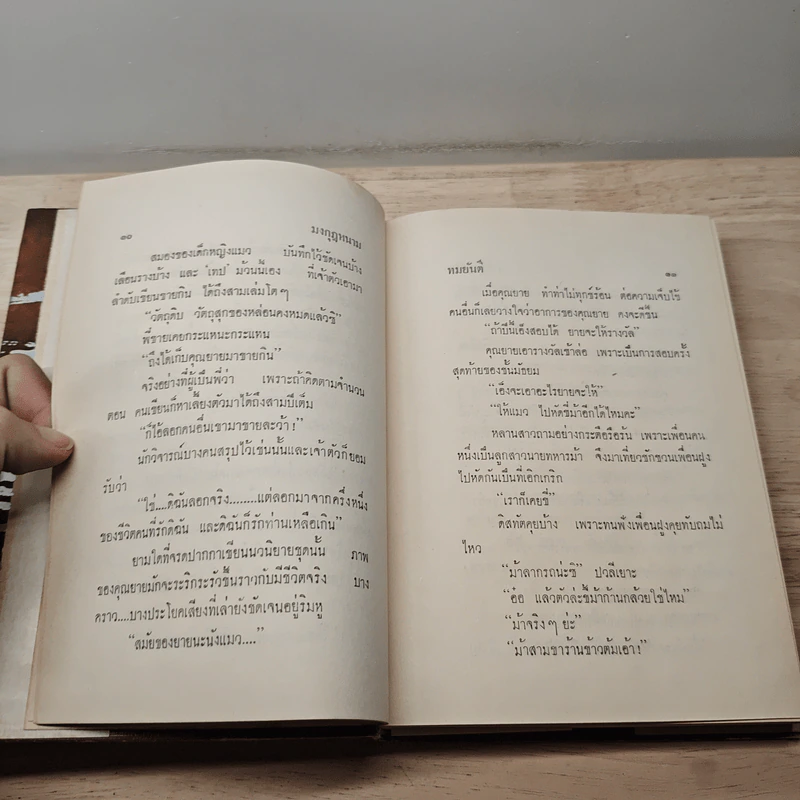 ๑๐ มงกุฎหนาม
สมองของเด็กหญิงแมว บันทึกไว้ชัดเจนบ้าง
เลือนรางบ้าง และ ‘เทป’ ม้วนนี้เอง ที่เจ้าตัวเอามา
ลำดับเขียนขายกิน ได้ถึงสามเล่มโตๆ
“วัตถุดิบ วัตถุสุกของหล่อนคงหมดแล้วซิ”
พี่ชายเคยกระแหนะกระแหน
“ถึงได้เก็บคุณยายมาขายกิน”
จริงอย่างที่ผู้เป็นพี่ว่า เพราะถ้าคิดตามจำนวน
ตอน คนเขียนก็หาเสียงตัวมาได้ถึงสามปีเต็ม
“ก็ไอ้ลอกคนอื่นเขามาขายละว้า!”
นักวิจารณ์บางคนสรุปไว้เช่นนั้นและเจ้าตัวก็ยอม
รับว่า
“ใช่....ดิฉันลอกจริง........แต่ลอกมาจากครึ่งหนึ่ง
ของชีวิตคนที่รักดิฉัน และดิฉันก็รักท่านเหลือเกิน”
ยามใดที่จรดปากกาเขียนนวนิยายชุดนั้น ภาพ
ของคุณยายมักจะระริกระรัวขึ้นราวกับมีชีวิตจริง บาง
คราว....บางประโยคเสียงที่เล่ายังชัดเจนอยู่ริมหู
“สมัยของยายนะนังแมว....”
ทมยันตี ๑๑
เมื่อคุณยาย ทำท่าไม่ทุกข์ร้อน ต่อความเจ็บไข้
คนอื่นก็เลยวางใจว่าอาการของคุณยาย คงจะดีขึ้น
“ถ้าปีนี้เอ็งสอบได้ ยายจะให้รางวัล”
คุณยายเอารางวัลเข้าล่อ เพราะเป็นการสอบครั้ง
สุดท้ายของชั้นมัธยม
“เอ็งจะเอาอะไรยายจะให้”
“ให้แมว ไปหัดขี่ม้าอีกได้ไหมคะ”
หลานสาวถามอย่างกระตือรือร้น เพราะเพื่อนคน
หนึ่งเป็นลูกสาวนายทหารม้า จึงมาเที่ยวชักชวนเพื่อนฝูง
ไปหัดกันเป็นที่เอิกเกริก
“เราก็เคยขี่”
ดิสทัตคุยบ้าง เพราะทนฟังเพื่อนฝูงคุยทับถมไม่
ไหว
“ม้าลากรถน่ะซิ” ปวลีเยาะ
“อ๋อ แล้วตัวล่ะขี่ม้าก้านกล้วยใช่ไหม”
“ม้าจริงๆ ย่ะ”
“ม้าสามขาร้านข้าวต้มเอ้า!”